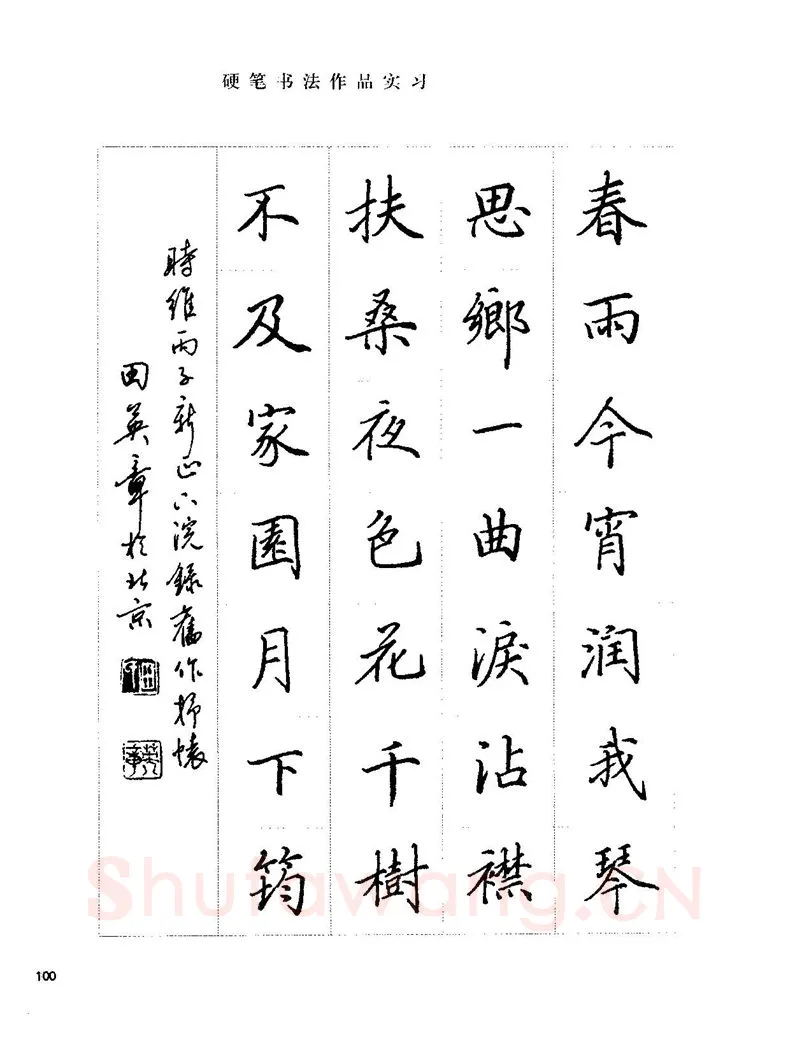 硬笔书法作品实习
春雨今宵润我琴
思鄉一曲淚沾襟
扶桑夜色花千樹
不及家園月下筠
時維丙子新正下浣錄舊作抒懷
田英章於北京
100
Shufawang.CN